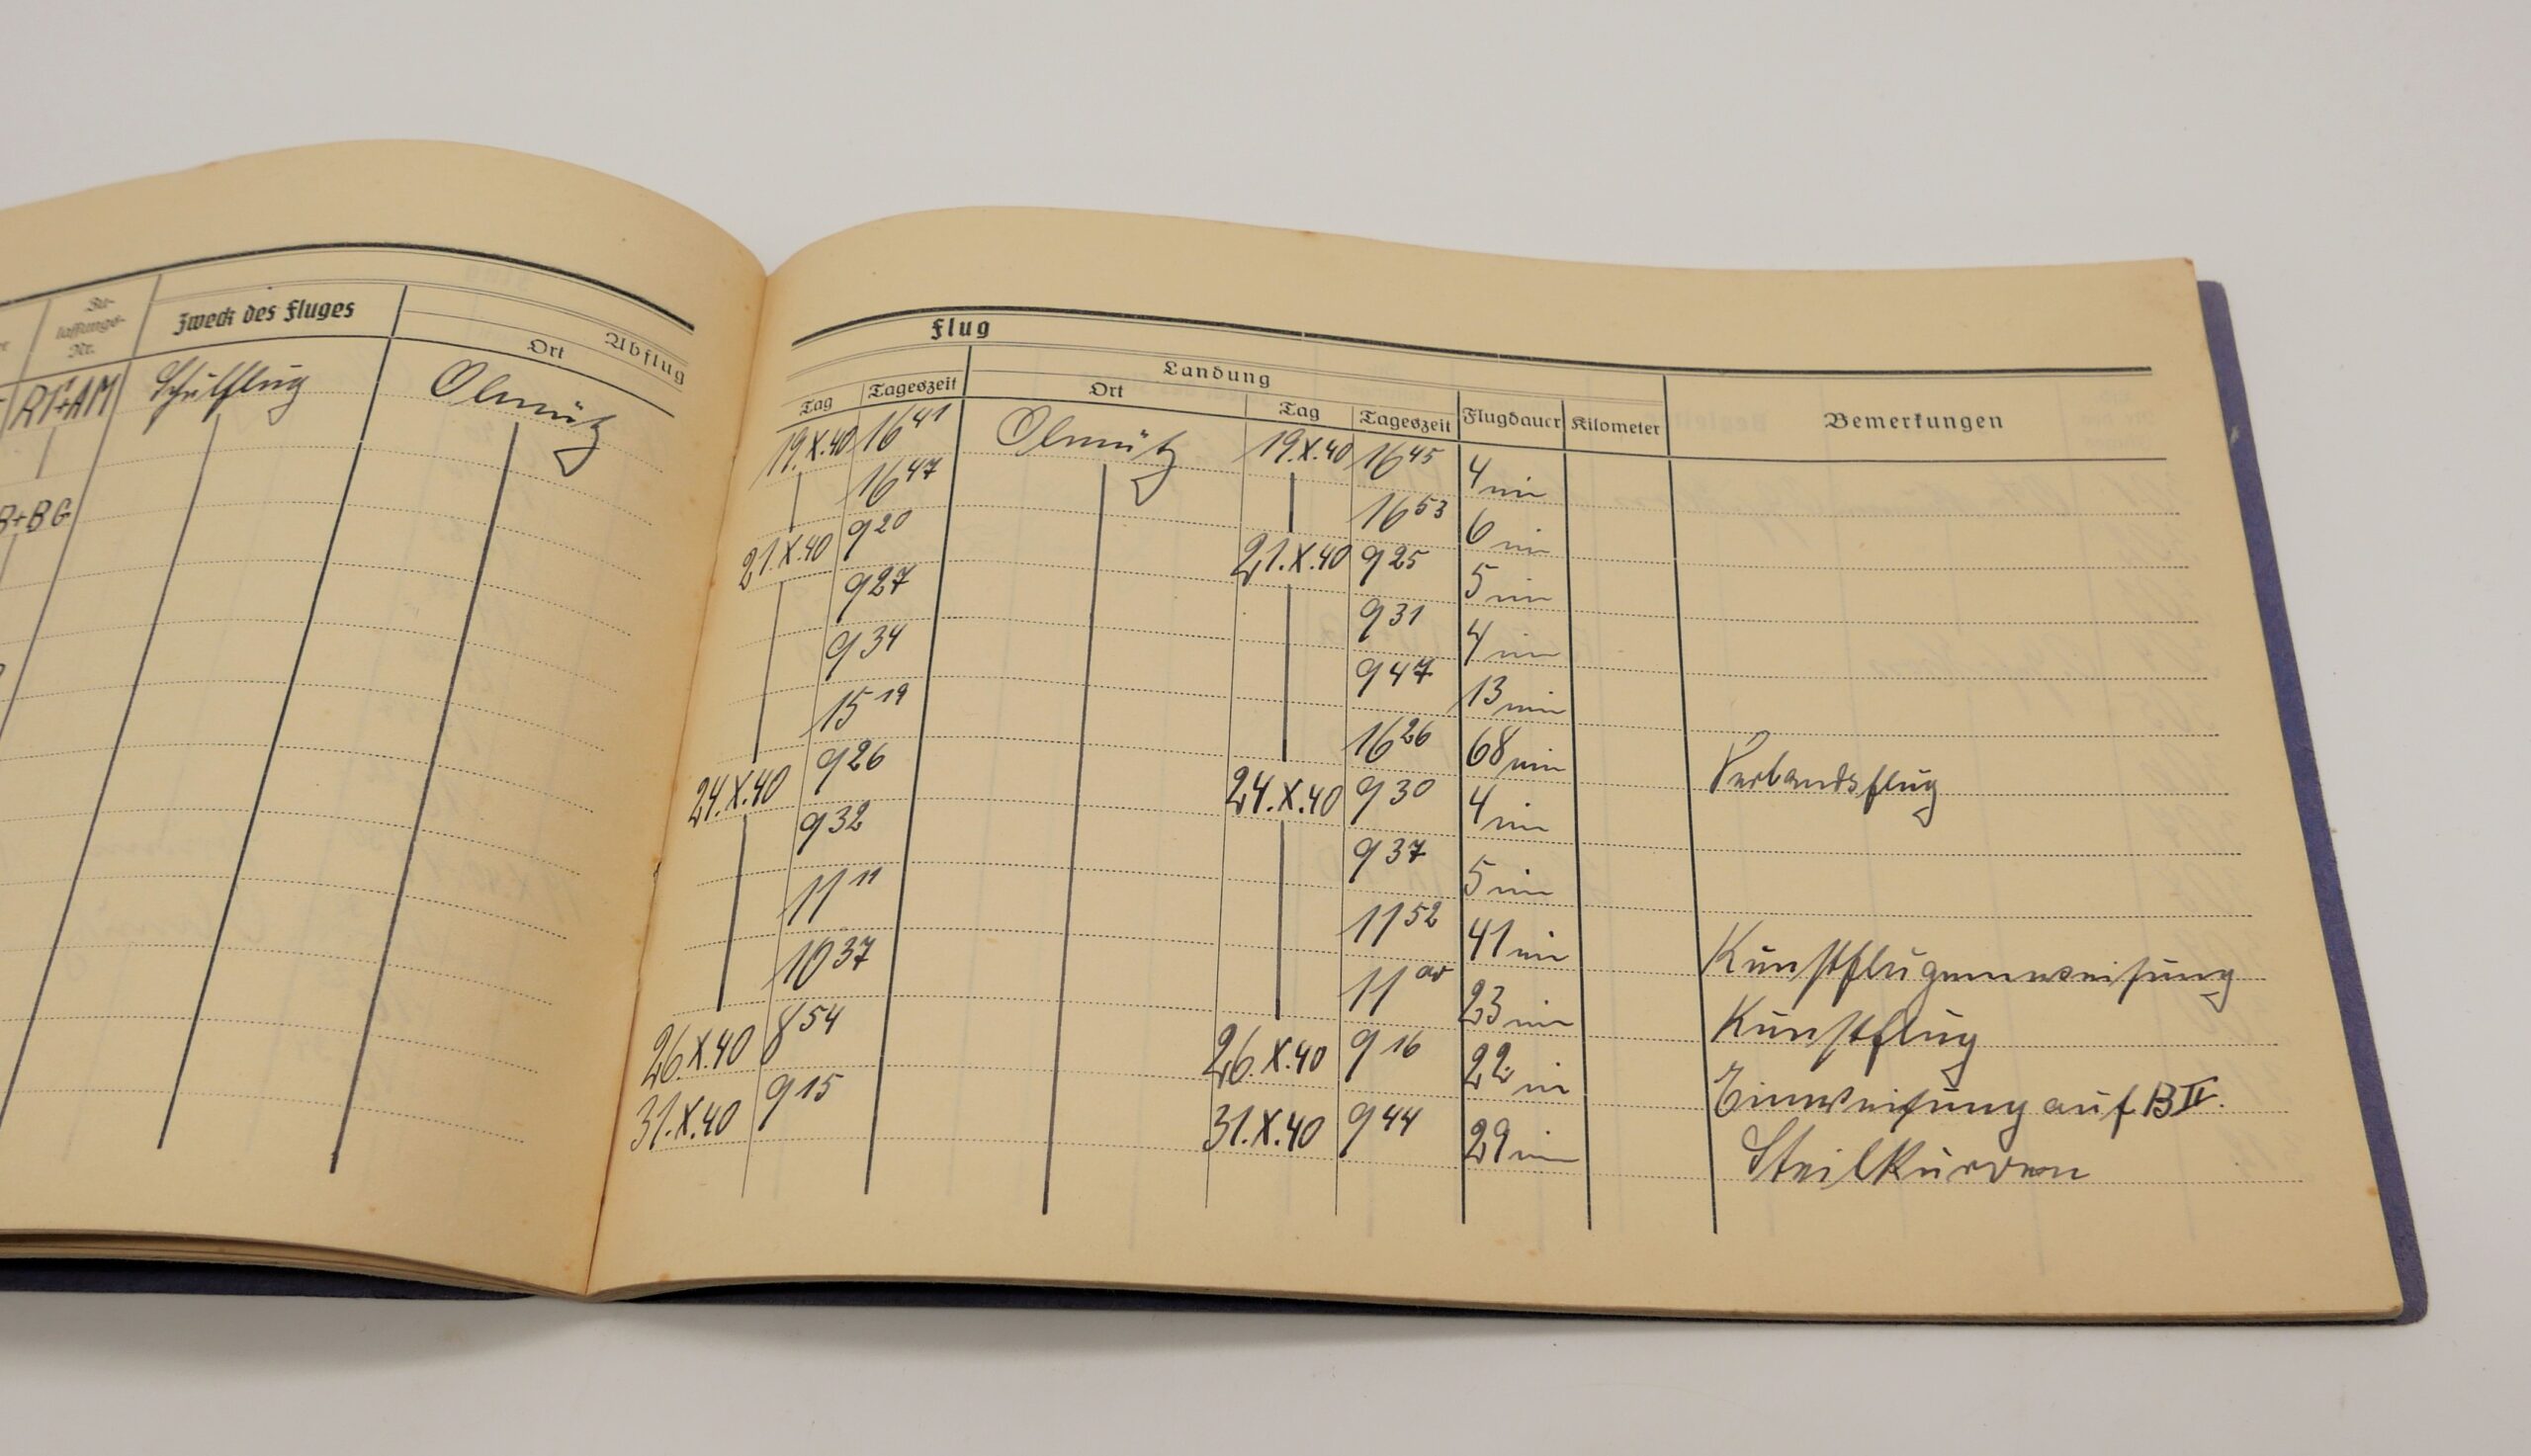 Zu-
lassungs-
Nr.
Zweck des Fluges
Abflug
Ort
Schulflug
Olmütz
B+BG
Flug
Landung
Tag Tageszeit Ort Tag Tageszeit Flugdauer Kilometer Bemerkungen
19.X.40 16 41 Olmütz 19.X.40 16 45 4 min
16 47 16 53 6 min
21.X.40 9 20 21.X.40 9 25 5 min
9 27 9 31 4 min
9 34 9 47 13 min
15 19 16 26 68 min Verbandsflug
24.X.40 9 26 24.X.40 9 30 4 min
9 32 9 37 5 min
11 11 11 52 41 min Kunstflugeinweisung
10 37 11 00 23 min Kunstflug
26.X.40 8 54 26.X.40 9 16 22 min Einweisung auf B II.
31.X.40 9 15 31.X.40 9 44 29 min Steilkurven